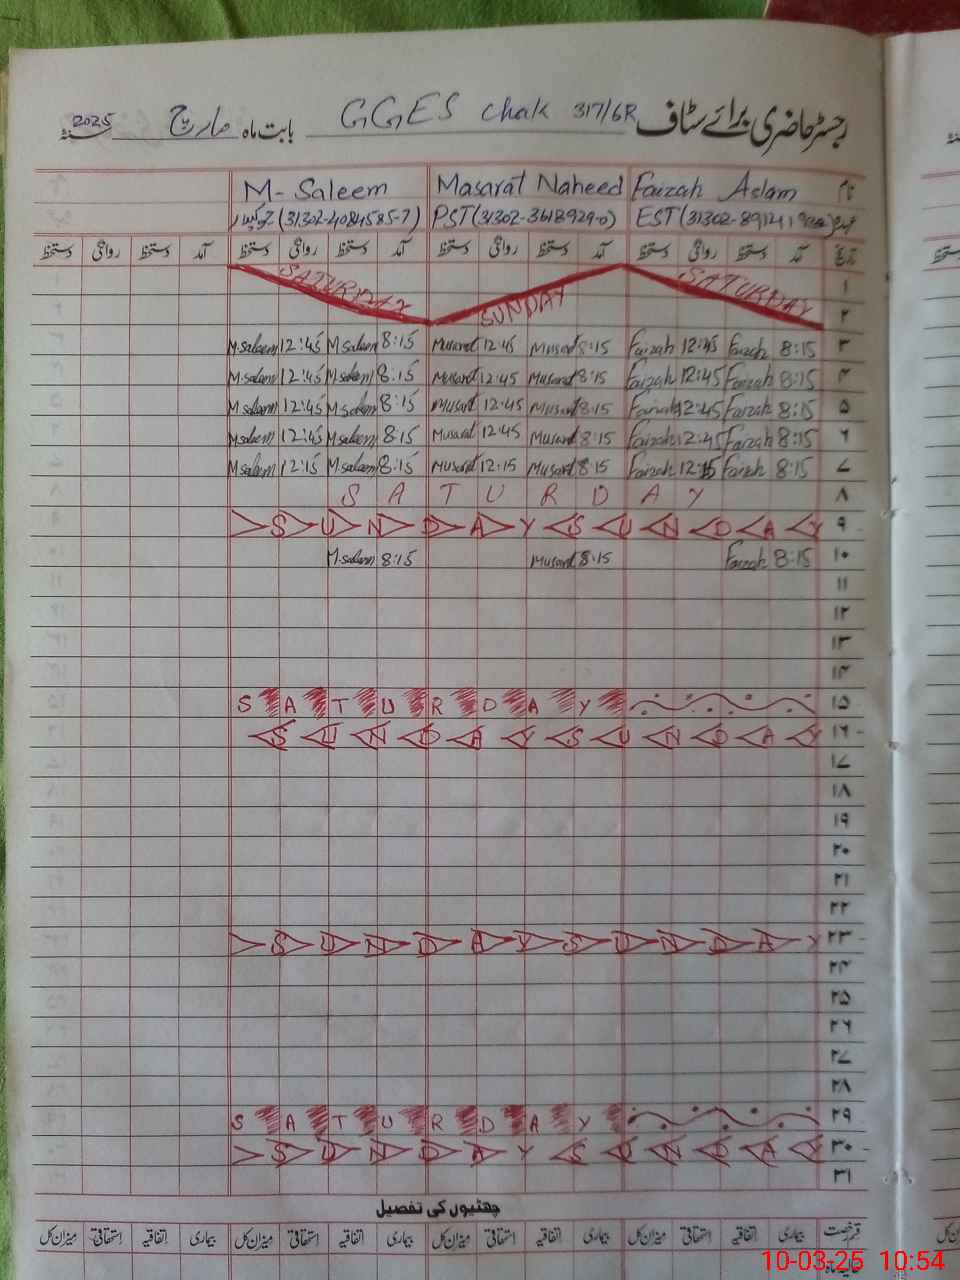 رجسٹر حاضری برائے سٹاف GGES Chak 317/6R بابت ماہ مارچ 2025
نام Faizah Aslam Masarat Naheed M-Saleem
عہدہ EST (31302- PST(31302-3618929-0) (31302-4084585-7)
تاریخ آمد دستخط روانگی دستخط آمد دستخط روانگی دستخط آمد دستخط روانگی دستخط آمد دستخط روانگی دستخط
۱ SATURDAY SATURDAY
۲ SUNDAY
۳ 8:15 Faizah 12:45 Faizah 8:15 Musarat 12:45 Musarat 8:15 M.Saleem 12:45 M.Saleem
۴ 8:15 Faizah 12:45 Faizah 8:15 Musarat 12:45 Musarat 8:15 M.Saleem 12:45 M.Saleem
۵ 8:15 Faizah 12:45 Faizah 8:15 Musarat 12:45 Musarat 8:15 M.Saleem 12:45 M.Saleem
۶ 8:15 Faizah 12:45 Faizah 8:15 Musarat 12:45 Musarat 8:15 M.Saleem 12:45 M.Saleem
۷ 8:15 Faizah 12:15 Faizah 8:15 Musarat 12:15 Musarat 8:15 M.Saleem 12:15 M.Saleem
۸ SATURDAY
۹ SUNDAY SUNDAY
۱۰ 8:15 Faizah 8:15 Musarat 8:15 M.Saleem
۱۱
۱۲
۱۳
۱۴
۱۵ SATURDAY
۱۶ SUNDAY SUNDAY
۱۷
۱۸
۱۹
۲۰
۲۱
۲۲
۲۳ SUNDAY SUNDAY
۲۴
۲۵
۲۶
۲۷
۲۸
۲۹ SATURDAY
۳۰ SUNDAY SUNDAY
۳۱
چھٹیوں کی تفصیل
قسم رخصت بیماری اتفاقیہ استحقاقی میزان کل بیماری اتفاقیہ استحقاقی میزان کل بیماری اتفاقیہ استحقاقی میزان کل بیماری اتفاقیہ استحقاقی میزان کل
حالیہ ماہ
10-03-25 10:54